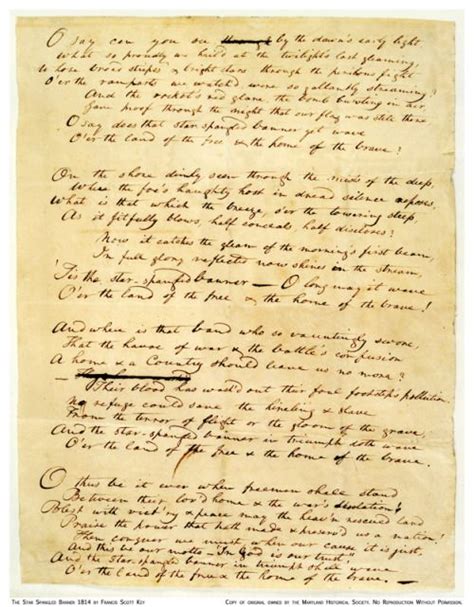 O say can you see by the dawn's early light
What so proudly we hail'd at the twilight's last gleaming,
Whose broad stripes & bright stars through the perilous fight
O'er the ramparts we watch'd, were so gallantly streaming?
And the rocket's red glare, the bomb bursting in air,
Gave proof through the night that our flag was still there
O say does that star-spangled banner yet wave
O'er the land of the free & the home of the brave?
On the shore dimly seen through the mists of the deep,
Where the foe's haughty host in dread silence reposes,
What is that which the breeze, o'er the towering steep,
As it fitfully blows, half conceals, half discloses?
Now it catches the gleam of the morning's first beam,
In full glory reflected now shines in the stream,
'Tis the star-spangled banner — O long may it wave
O'er the land of the free & the home of the brave!
And where is that band who so vauntingly swore,
That the havoc of war & the battle's confusion
A home & a Country should leave us no more?
Their blood has wash'd out their foul footsteps pollution.
No refuge could save the hireling & slave
From the terror of flight or the gloom of the grave,
And the star-spangled banner in triumph doth wave
O'er the land of the free & the home of the brave.
O thus be it ever when freemen shall stand
Between their lov'd home & the war's desolation!
Blest with vict'ry & peace may the heav'n rescued land
Praise the power that hath made & preserv'd us a nation!
Then conquer we must, when our cause it is just,
And this be our motto - "In God is our trust,"
And the star-spangled banner in triumph shall wave
O'er the land of the free & the home of the brave.
The Star Spangled Banner 1814 by Francis Scott Key
Copy of original owned by the Maryland Historical Society. No Reproduction Without Permission.